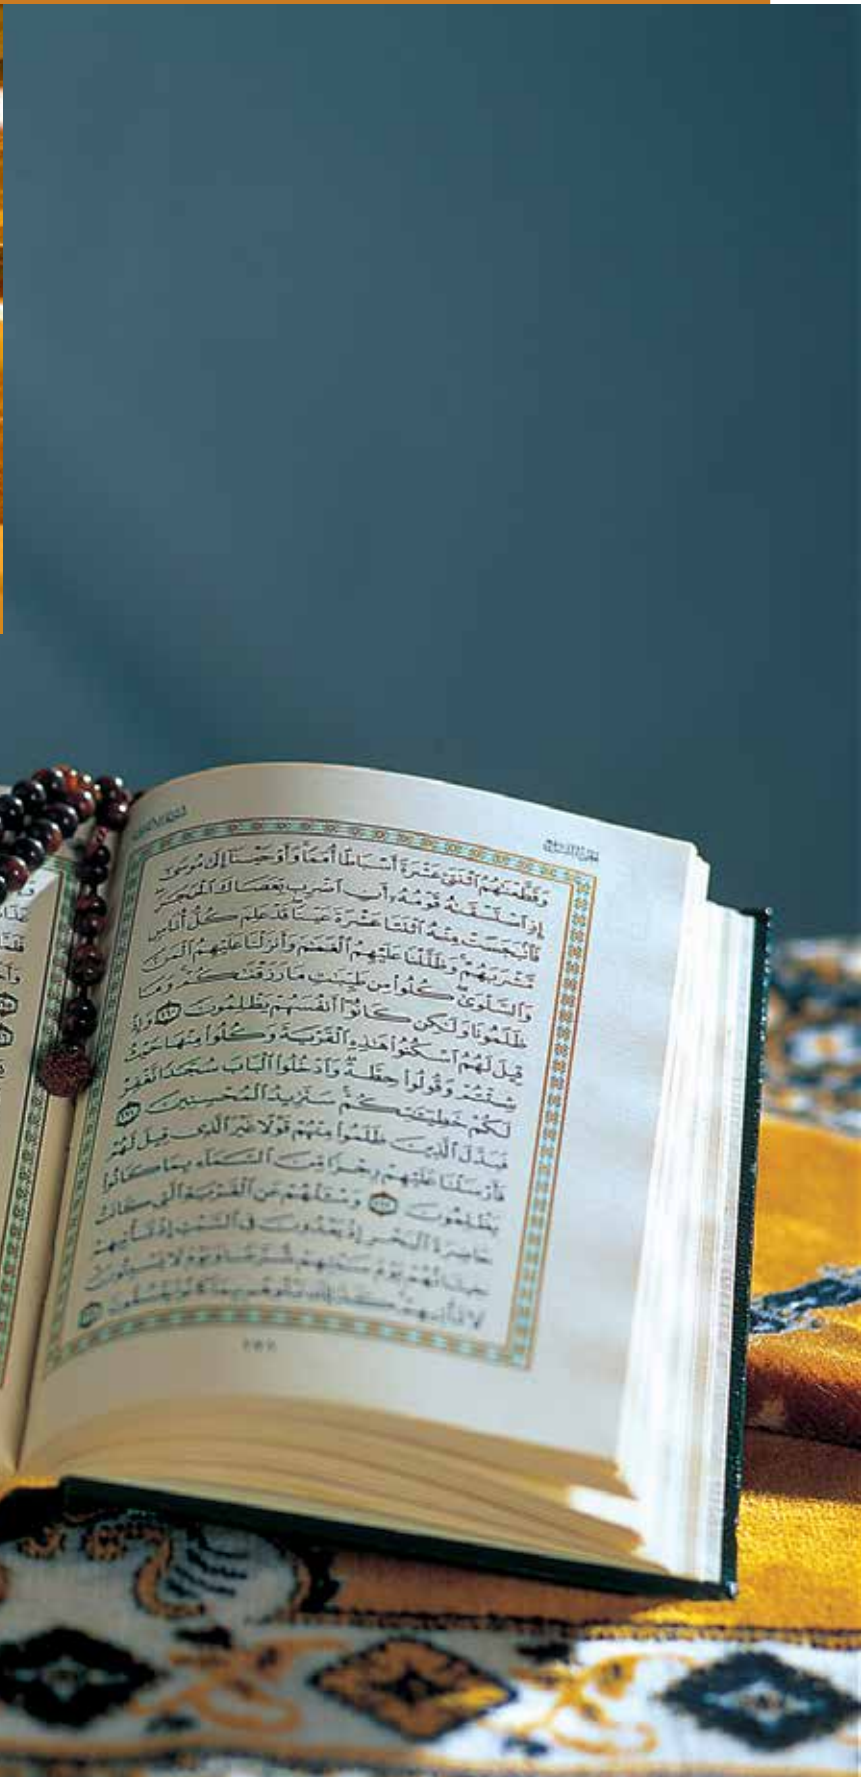 وَقَطَّعْنَٰهُمُ ٱثْنَتَىْ عَشْرَةَ أَسْبَاطًا أُمَمًا ۚ وَأَوْحَيْنَآ إِلَىٰ مُوسَىٰٓ
إِذِ ٱسْتَسْقَىٰهُ قَوْمُهُۥٓ أَنِ ٱضْرِب بِّعَصَاكَ ٱلْحَجَرَ ۖ
فَٱنۢبَجَسَتْ مِنْهُ ٱثْنَتَا عَشْرَةَ عَيْنًا ۖ قَدْ عَلِمَ كُلُّ أُنَاسٍ
مَّشْرَبَهُمْ ۚ وَظَلَّلْنَا عَلَيْهِمُ ٱلْغَمَٰمَ وَأَنزَلْنَا عَلَيْهِمُ ٱلْمَنَّ
وَٱلسَّلْوَىٰ ۖ كُلُوا۟ مِن طَيِّبَٰتِ مَا رَزَقْنَٰكُمْ ۚ وَمَا
ظَلَمُونَا وَلَٰكِن كَانُوٓا۟ أَنفُسَهُمْ يَظْلِمُونَ ١٦٠ وَإِذْ
قِيلَ لَهُمُ ٱسْكُنُوا۟ هَٰذِهِ ٱلْقَرْيَةَ وَكُلُوا۟ مِنْهَا حَيْثُ
شِئْتُمْ وَقُولُوا۟ حِطَّةٌ وَٱدْخُلُوا۟ ٱلْبَابَ سُجَّدًا نَّغْفِرْ
لَكُمْ خَطِيٓـَٰٔتِكُمْ ۚ سَنَزِيدُ ٱلْمُحْسِنِينَ ١٦١
فَبَدَّلَ ٱلَّذِينَ ظَلَمُوا۟ مِنْهُمْ قَوْلًا غَيْرَ ٱلَّذِى قِيلَ لَهُمْ
فَأَرْسَلْنَا عَلَيْهِمْ رِجْزًا مِّنَ ٱلسَّمَآءِ بِمَا كَانُوا۟
يَظْلِمُونَ ١٦٢ وَسْـَٔلْهُمْ عَنِ ٱلْقَرْيَةِ ٱلَّتِى كَانَتْ
حَاضِرَةَ ٱلْبَحْرِ إِذْ يَعْدُونَ فِى ٱلسَّبْتِ إِذْ تَأْتِيهِمْ
حِيتَانُهُمْ يَوْمَ سَبْتِهِمْ شُرَّعًا وَيَوْمَ لَا يَسْبِتُونَ
لَا تَأْتِيهِمْ ۚ كَذَٰلِكَ نَبْلُوهُم بِمَا كَانُوا۟ يَفْسُقُونَ ١٦٣